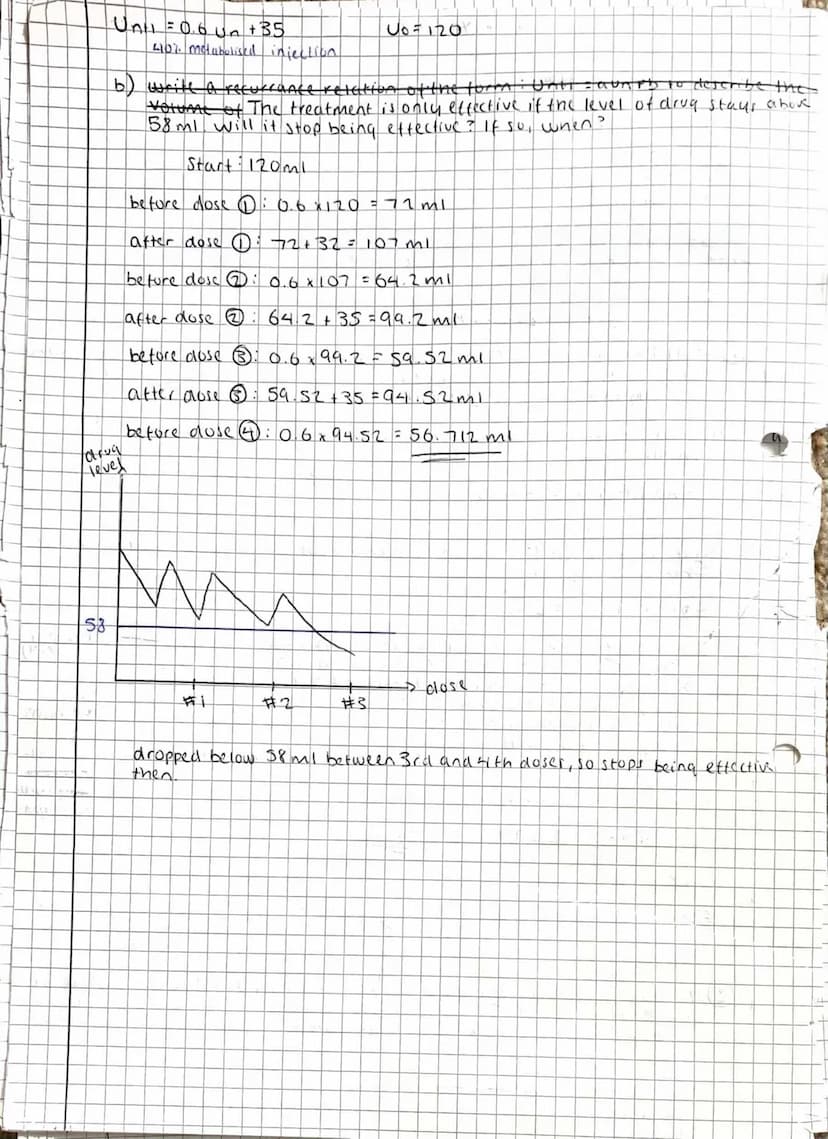 Un+1 = 0.6 Un + 35 U0 = 120
40% metabolised injection
b) write a recurrance relation of the form: Un+1 = aUn + b to describe the
volume of The treatment is only effective if the level of drug stays above
58ml. Will it stop being effective? If so, when?
Start: 120ml
before dose ①: 0.6 x 120 = 72 ml
after dose ①: 72 + 32 = 107 ml
before dose ②: 0.6 x 107 = 64.2 ml
after dose ②: 64.2 + 35 = 99.2 ml
before dose ③: 0.6 x 99.2 = 59.52 ml
after dose ③: 59.52 + 35 = 94.52 ml
before dose ④: 0.6 x 94.52 = 56.712 ml
drug
level
58
dose
#1 #2 #3
dropped below 58ml between 3rd and 4th doses, so stops being effective
then.